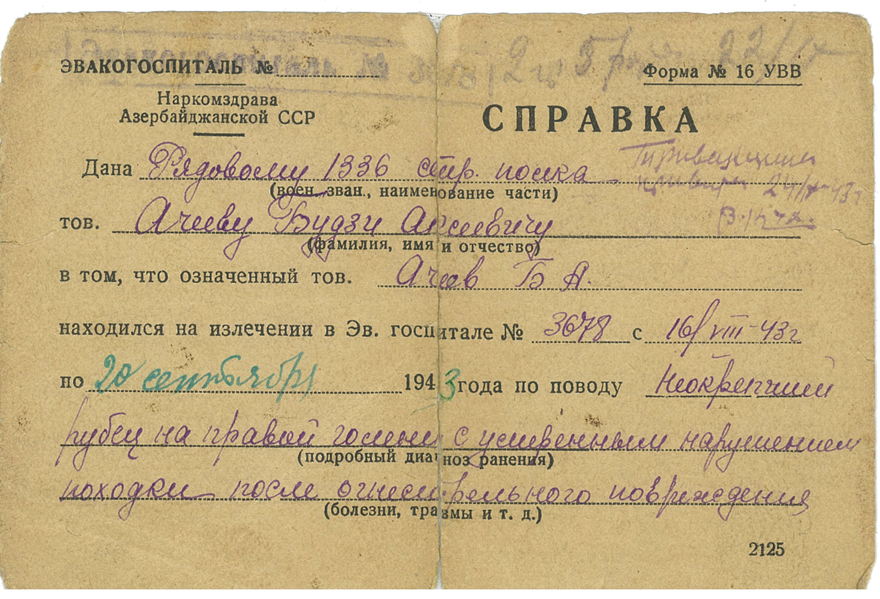 ЭВАКОГОСПИТАЛЬ №
Форма № 16 УВВ
Наркомздрава
Азербайджанской ССР
СПРАВКА
Дана Рядовому 1336 стр. полка
(воен. зван., наименование части)
24/ 43г
тов. Ачееву Будзи
(фамилия, имя и отчество)
в том, что означенный тов. Ачеев Б А.
находился на излечении в Эв. госпитале № 3678 с 16/VIII-43г
по 20 сентября 1943 года по поводу Неокрепший
рубец на правой голени с умеренным нарушением
(подробный диагноз ранения)
походки после огнестрельного повреждения
(болезни, травмы и т. д.)
2125